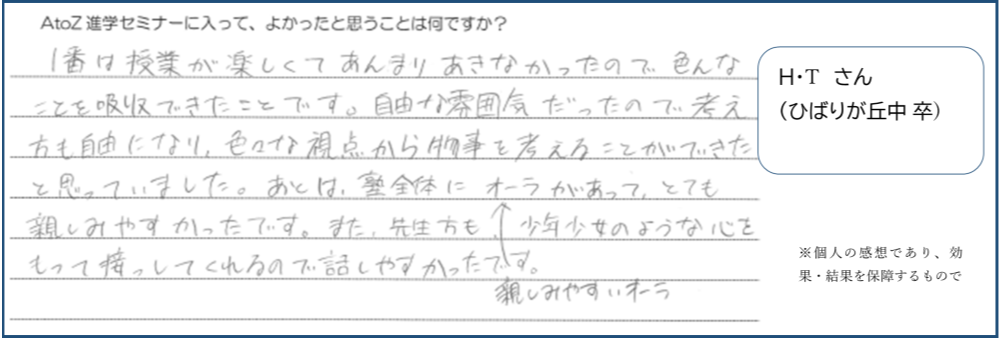 AtoZ進学セミナーに入って、よかったと思うことは何ですか？
1番は授業が楽しくてあんまりあきなかったので色んな
ことを吸収できたことです。自由な雰囲気だったので考え
方も自由になり、色々な視点から物事を考えることができた
と思っていました。あとは、塾全体にオーラがあって、とても
親しみやすかったです。また、先生方も、少年少女のような心を
もって接っしてくれるので話しやすかったです。
親しみやすいオーラ
H・T さん
（ひばりが丘中 卒）
※個人の感想であり、効
果・結果を保障するもので